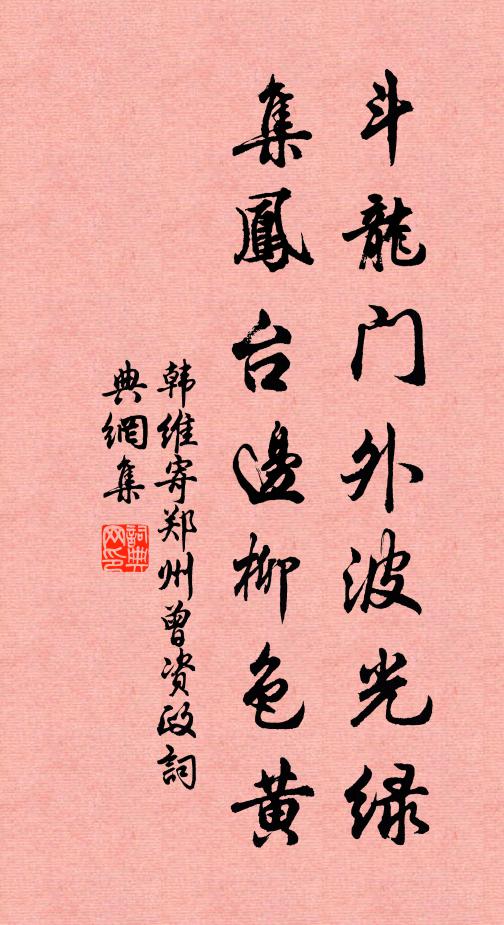 斗龍门外波光绿
集鳳台邊柳色黄
韩维寄郑州曾资政詞
典網集
詞典网印